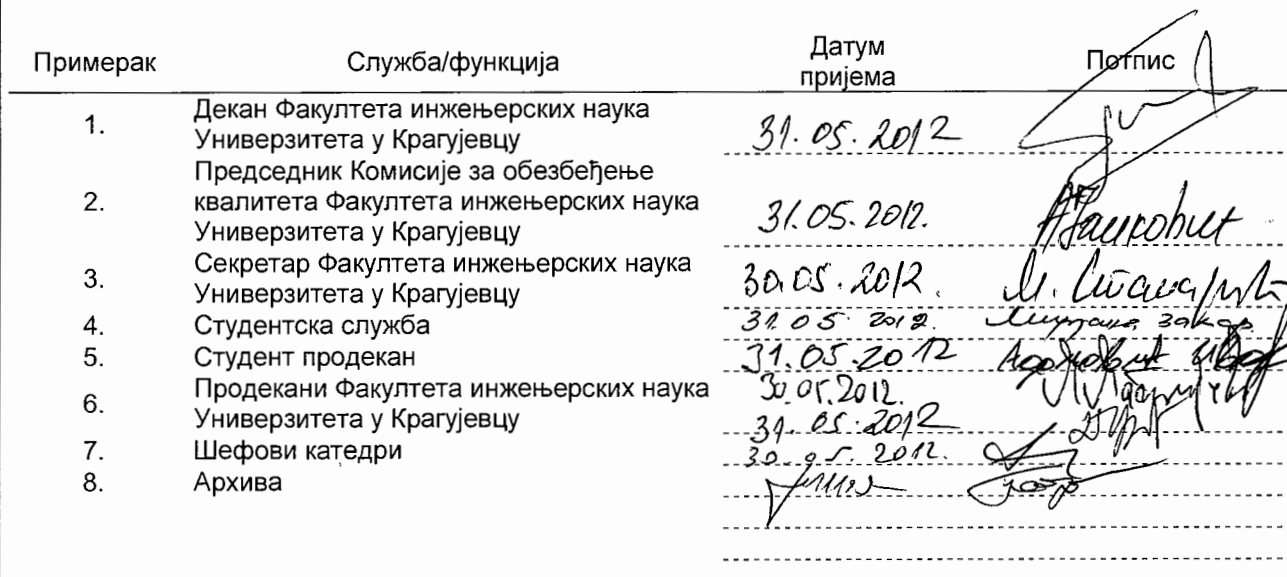 Примерак Служба/функција Датум пријема Потпис
1. Декан Факултета инжењерских наука
Универзитета у Крагујевцу 31.05.2012
Председник Комисије за обезбеђење
2. квалитета Факултета инжењерских наука
Универзитета у Крагујевцу 31.05.2012.
3. Секретар Факултета инжењерских наука
Универзитета у Крагујевцу 30.05.2012.
4. Студентска служба 31.05.2012.
5. Студент продекан 31.05.2012
6. Продекани Факултета инжењерских наука 30.05.2012.
Универзитета у Крагујевцу 31.05.2012
7. Шефови катедри 30.05.2012.
8. Архива